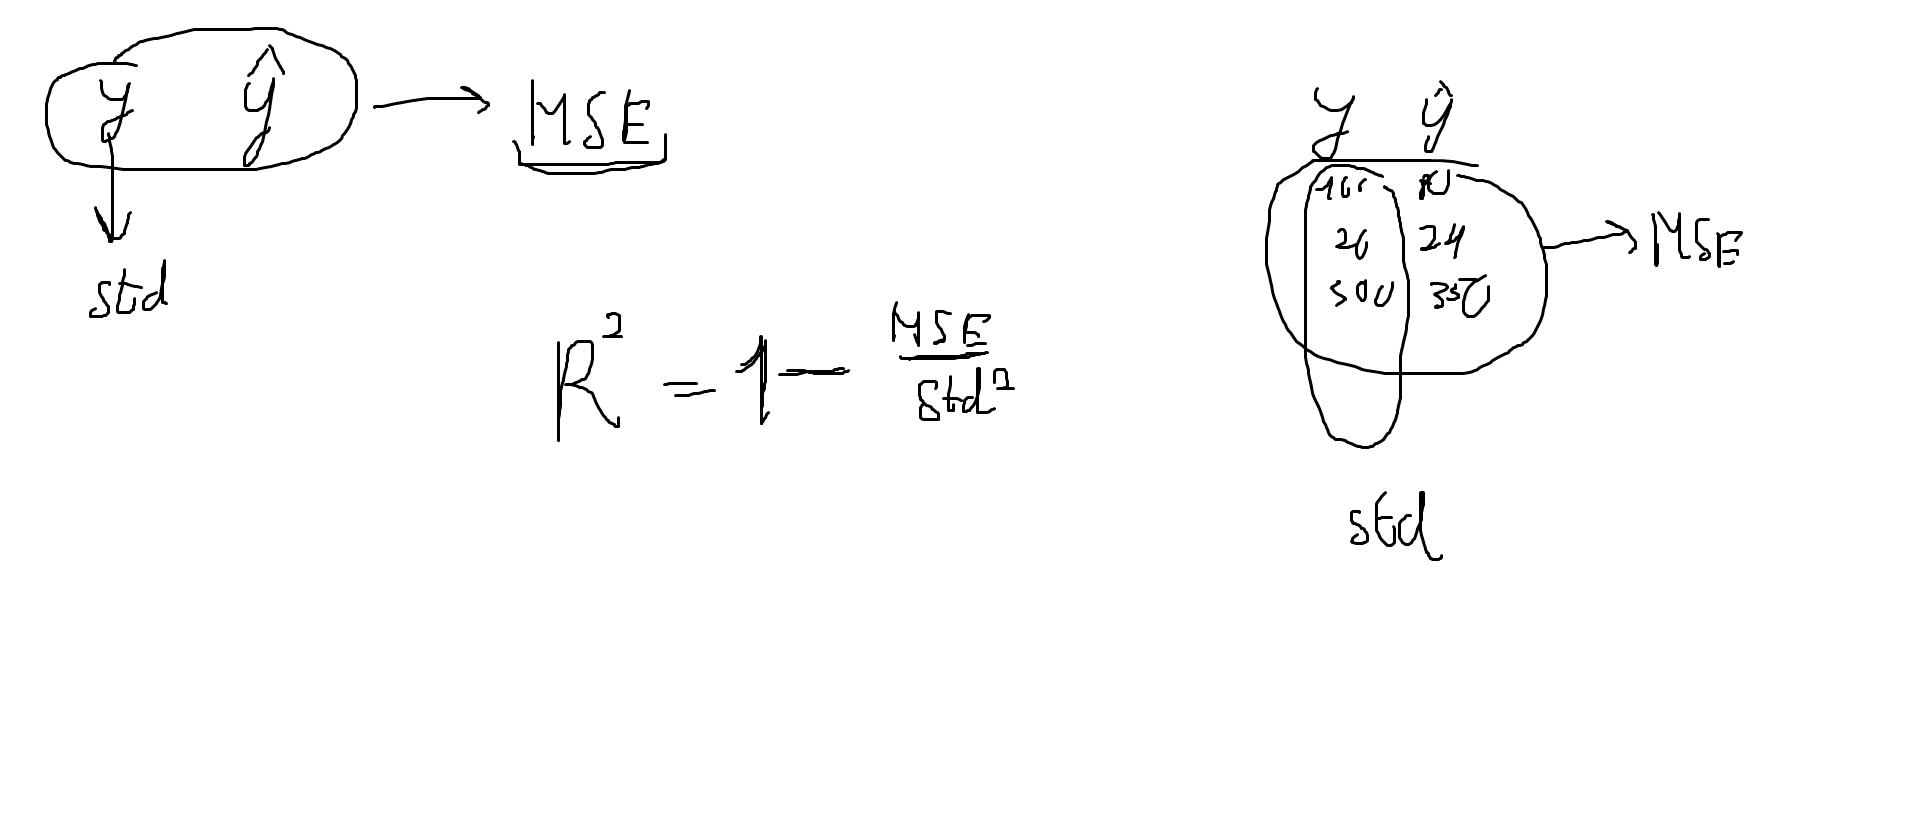 y ŷ → MSE
std
R² = 1 — MSE / std²
y ŷ
100
20 24
500 350
→ MSE
std